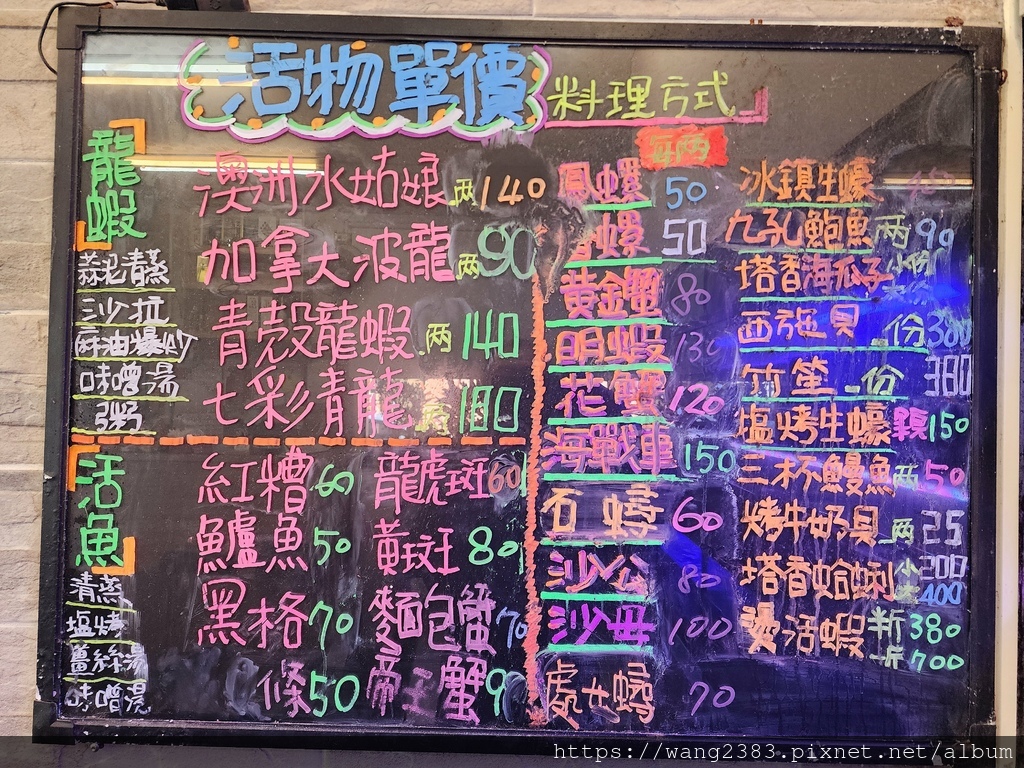 活物單價 料理方式
每兩
龍蝦
蒜泥清蒸
沙拉
麻油爆炒
味噌湯
粥
澳洲水姑娘 两140
加拿大波龍 两90
青殼龍蝦 两140
七彩青龍 180
活魚
清蒸
塩烤
薑絲湯
味噌湯
紅糟60
鱸魚50
黑格70
條50
龍虎斑60
黃斑80
麵包蟹70
帝王蟹9
鳳螺 50
螺 50
黃金蟹 80
明蝦 130
花蟹 120
海戰車 150
石蟳 60
沙公 80
沙母 100
處女蟳 70
冰鎮生蠔
九孔鮑魚 两99
塔香海瓜子 小份
西施貝 份380
竹笙 一份 380
塩烤生蠔 顆150
三杯鰻魚 两50
烤牛奶貝 两25
塔香蛤蜊 小200
大400
燙活蝦 半斤380
一斤700
https://wang2383.pixnet.net/album